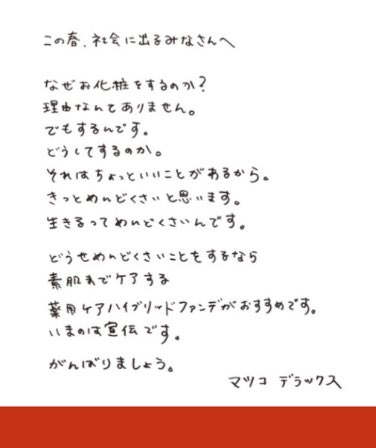 この春、社会に出るみなさんへ
なぜお化粧をするのか?
理由なんてありません。
でもするんです。
どうしてするのか。
それはちょっといいことがあるから。
きっとめんどくさいと思います。
生きるってめんどくさいんです。
どうせめんどくさいことをするなら
素肌までケアする
薬用ケアハイブリッドファンデがおすすめです。
いまのは宣伝です。
がんばりましょう。
マツコ デラックス